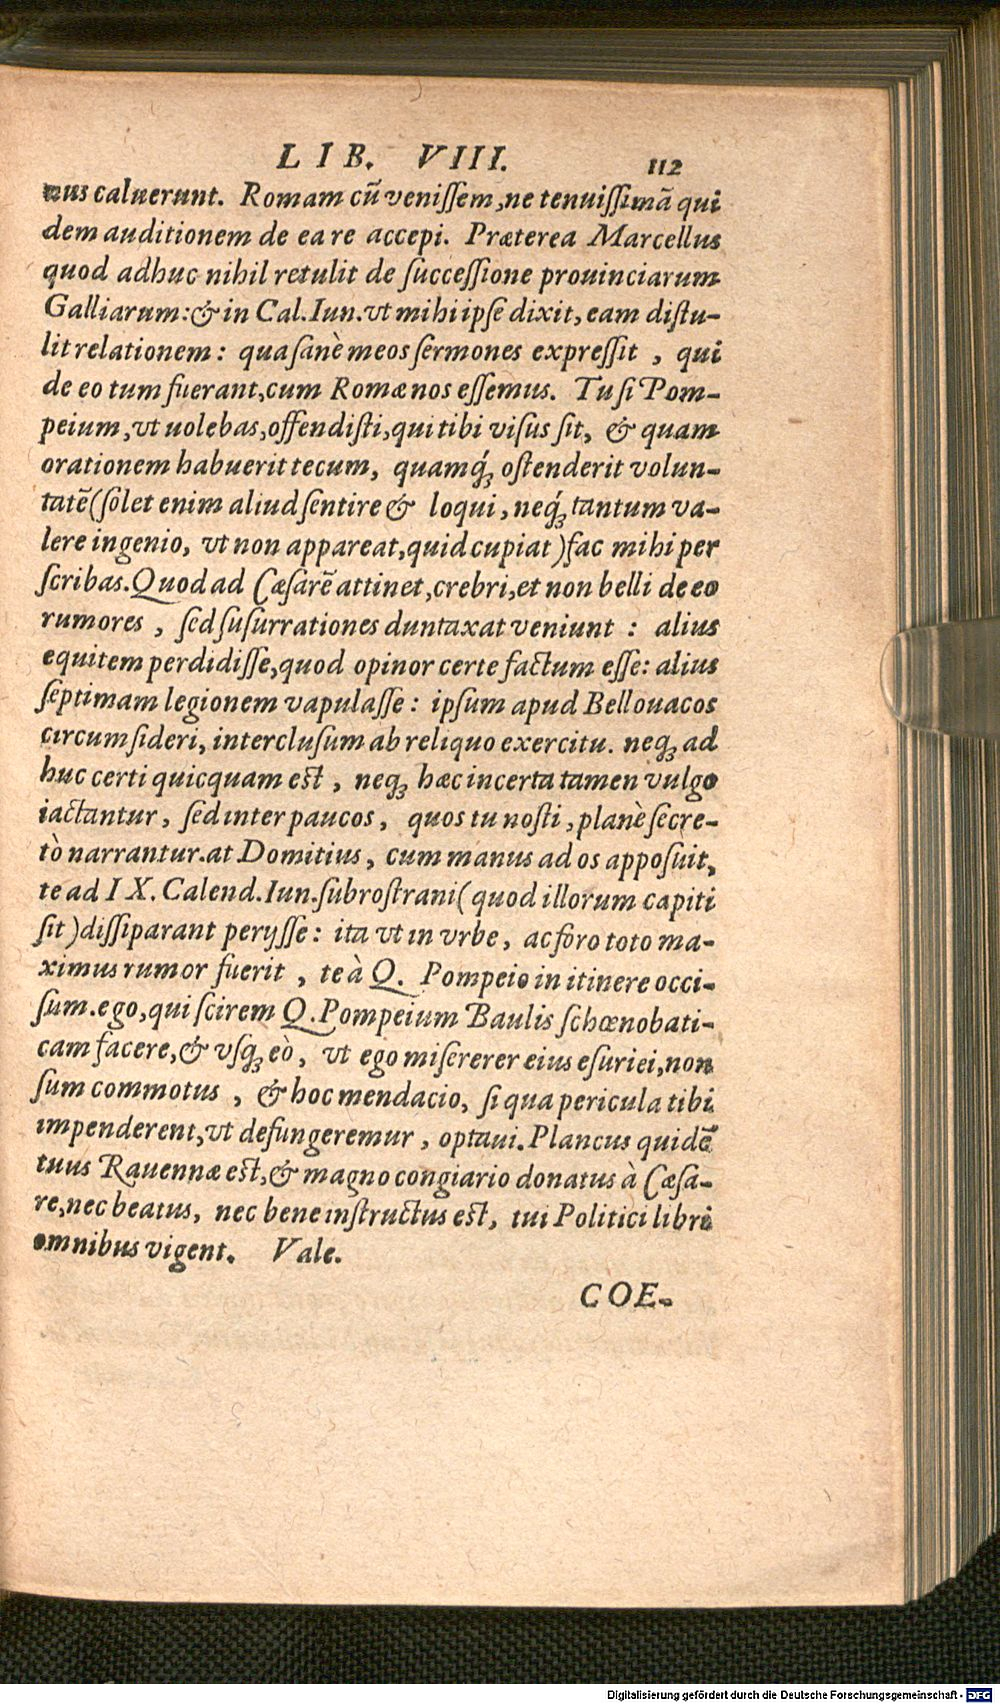 LIB. VIII. 112
nus caluerunt. Romam cũ venissem, ne tenuissimã qui
dem auditionem de ea re accepi. Præterea Marcellus
quod adhuc nihil retulit de successione prouinciarum
Galliarum: & in Cal. Iun. vt mihi ipse dixit, eam distu-
lit relationem: qua sanè meos sermones expressit, qui
de eo tum fuerant, cum Romæ nos essemus. Tu si Pom-
peium, vt uolebas, offendisti, qui tibi visus sit, & quam
orationem habuerit tecum, quamq́; ostenderit volun-
tatẽ (solet enim aliud sentire & loqui, neq́; tantum va-
lere ingenio, vt non appareat, quid cupiat) fac mihi per
scribas. Quod ad Cæsarẽ attinet, crebri, et non belli de eo
rumores, sed susurrationes duntaxat veniunt: alius
equitem perdidisse, quod opinor certe factum esse: alius
septimam legionem vapulasse: ipsum apud Bellouacos
circumsideri, interclusum ab reliquo exercitu. neq; ad
huc certi quicquam est, neq; hæc incerta tamen vulgo
iactantur, sed inter paucos, quos tu nosti, planè secre-
tò narrantur. at Domitius, cum manus ad os apposuit,
te ad IX. Calend. Iun. subrostrani (quod illorum capiti
sit) dissiparant perijsse: ita vt in vrbe, ac foro toto ma-
ximus rumor fuerit, te à Q. Pompeio in itinere occi-
sum. ego, qui scirem Q. Pompeium Baulis schœnobati-
cam facere, & vsq; eò, vt ego misererer eius esuriei, non
sum commotus, & hoc mendacio, si qua pericula tibi
impenderent, vt defungeremur, optaui. Plancus quidẽ
tuus Rauennæ est, & magno congiario donatus à Cæsa-
re, nec beatus, nec bene instructus est, tui Politici libri
omnibus vigent. Vale.
COE-
Digitalisierung gefördert durch die Deutsche Forschungsgemeinschaft - DFG